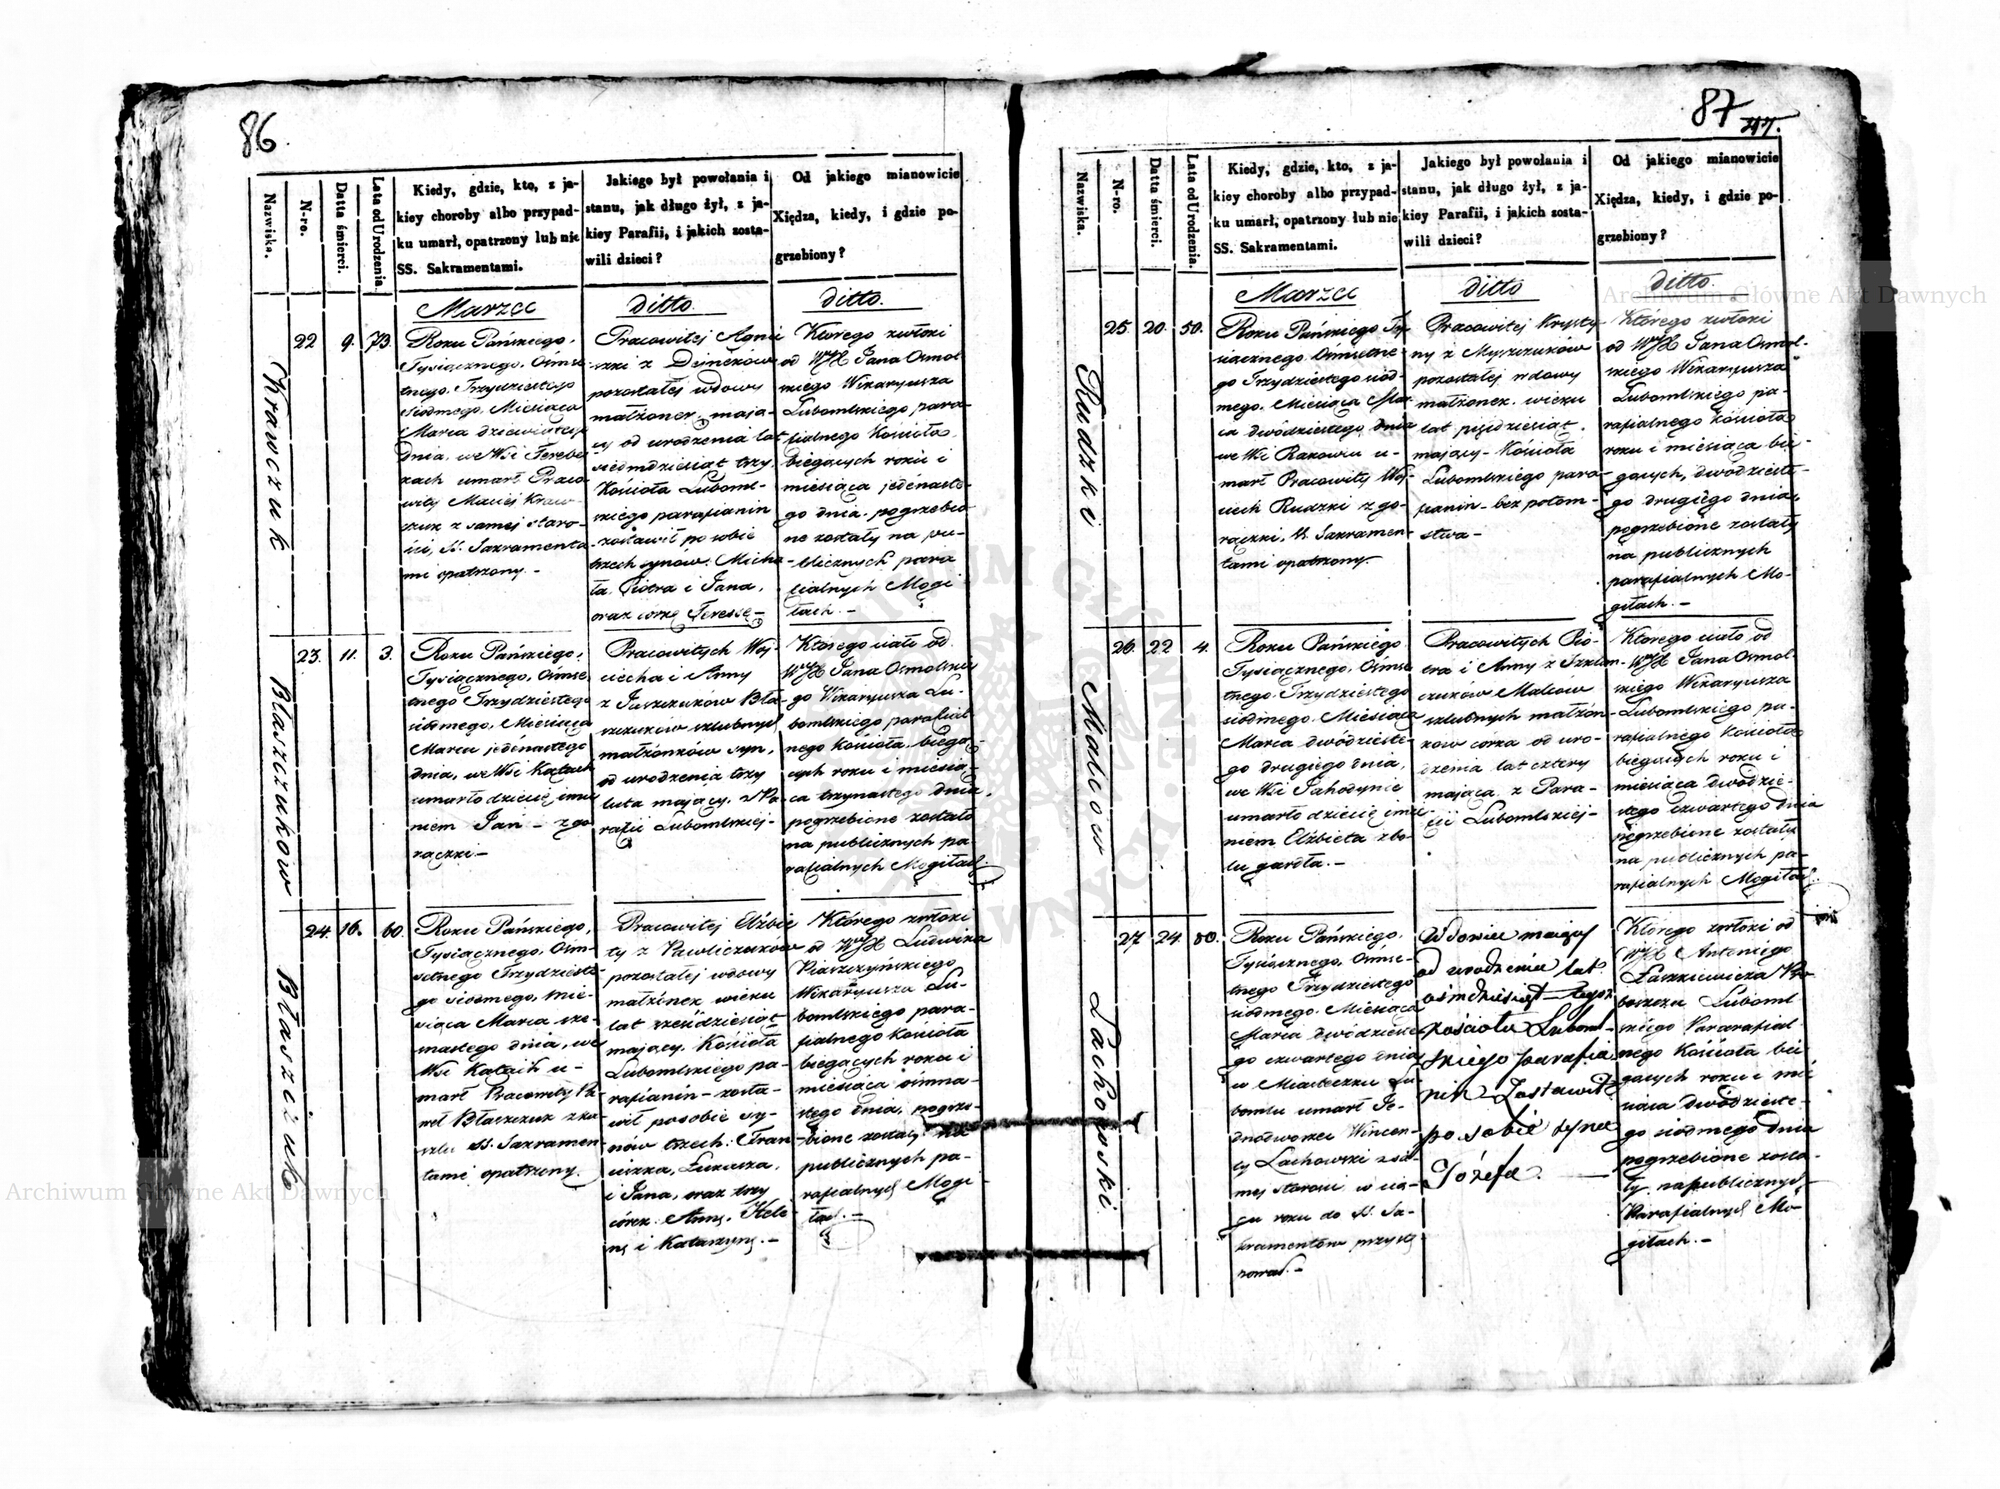 86
Nazwiska.
N-ro.
Datta śmierci.
Lata od Urodzenia.
Kiedy, gdzie, kto, z ja-
kiey choroby albo przypad-
ku umarł, opatrzony lub nie
SS. Sakramentami.
Jakiego był powołania i
stanu, jak długo żył, z ja-
kiey Parafii, i jakich zosta-
wili dzieci?
Od jakiego mianowicie
Xiędza, kiedy, i gdzie po-
grzebiony?
Marzec
ditto.
ditto.
Krawczuk
22
9.
73.
Roku Pańskiego,
Tysiącznego, Ośmse
tnego, Trzydziestego
siódmego, Miesiąca
Marca dziewiątego
dnia, we Wsi Terebe
zach umarł Praco
wity Maciej Kraw
czuk z samej staro-
ści, SS. Sakramenta
mi opatrzony. -
Pracowitej Agnie
szki z Dyńczków
pozostałej wdowy
małżonek, mają-
cy od urodzenia lat
siedmdziesiąt trzy,
Kościoła Luboml-
skiego parafianin
zostawił po sobie
trzech synów: Micha
ła, Piotra i Jana,
oraz córkę Teressę -
Którego zwłoki
od WJX Jana Osmol
skiego Wikaryusza
Lubomlskiego para
fialnego Kościoła,
biegących roku i
miesiąca jedenaste-
go dnia, pogrzebio
ne zostały na pu-
blicznych para
fialnych Mogi
łach. -
Błaszczuków
23.
11.
3.
Roku Pańskiego,
Tysiącznego, Ośmse
tnego Trzydziestego
siódmego, Miesiąca
Marca jedenastego
dnia, we Wsi Kątach
umarło dziecię imie
niem Jan - z go
rączki -
Pracowitych Woj-
ciecha i Anny
z Juszczuków Bła-
szczuków szlubnych
małżonków syn,
od urodzenia trzy
lata mający, z Pa-
rafii Lubomlskiej -
Którego ciało od
WJX Jana Osmolskie
go Wikaryusza Lu-
bomlskiego parafial
nego Kościoła, biegą-
cych roku i miesią-
ca trzynastego dnia,
pogrzebione zostało
na publicznych pa-
rafialnych Mogiłach
Błaszczuk
24.
16.
60.
Roku Pańskiego,
Tysiącznego, Ośm-
setnego Trzydzieste
go siódmego, Mie-
siąca Marca sze-
snastego dnia, we
Wsi Kątach u-
marł Pracowity Pa-
weł Błaszczuk z ka
szlu SS. Sakramen
tami opatrzony.
Pracowitej Elżbie
ty z Pawliczuków
pozostałej wdowy
małżonek wieku
lat sześdziesiąt
mający, Kościoła
Lubomlskiego pa-
rafianin - zosta-
wił po sobie sy-
nów trzech: Fran
ciszka, Łukasza,
i Jana, oraz trzy
córek: Annę, Hele
nę i Katarzynę. -
Którego zwłoki
od WJX Ludwika
Piaszczyńskiego
Wikaryusza Lu-
bomlskiego para-
fialnego Kościoła
biegących roku i
miesiąca ośmna-
stego dnia, pogrze-
bione zostały na
publicznych pa-
rafialnych Mogi
łach. -
87
47.
Nazwiska.
N-ro.
Datta śmierci.
Lata od Urodzenia.
Kiedy, gdzie, kto, z ja-
kiey choroby albo przypad-
ku umarł, opatrzony lub nie
SS. Sakramentami.
Jakiego był powołania i
stanu, jak długo żył, z ja-
kiey Parafii, i jakich zosta-
wili dzieci?
Od jakiego mianowicie
Xiędza, kiedy, i gdzie po-
grzebiony?
Marzec
ditto
ditto.
Rudzki
25.
20.
50.
Roku Pańskiego Ty-
siącznego, Ośmsetne
go Trzydziestego siód-
mego, Miesiąca Mar
ca dwódziestego dnia
we Wsi Rakowcu u-
marł Pracowity Woj-
ciech Rudzki z go-
rączki, SS. Sakramen-
tami opatrzony.
Pracowitej Krysty-
ny z Myszczuków
pozostałej wdowy
małżonek, wieku
lat pięćdziesiąt,
mający - Kościoła
Lubomlskiego para-
fianin - bez potom-
stwa -
Którego zwłoki
od WJX Jana Osmol-
skiego Wikaryusza
Lubomlskiego pa-
rafialnego Kościoła
roku i miesiąca bie-
gących, dwódzieste-
go drugiego dnia,
pogrzebione zostały
na publicznych
parafialnych Mo-
giłach. -
Malców
26.
22
4.
Roku Pańskiego
Tysiącznego, Ośmse
tnego, Trzydziestego
siódmego, Miesiąca
Marca dwódzieste-
go drugiego dnia,
we Wsi Jahodynie
umarło dziecię imie
niem Elżbieta z bo-
lu gardła. -
Pracowitych Pio-
tra i Anny z Szklan-
czuków Malców
szlubnych małżon-
ków córka od uro-
dzenia lat cztery
mająca, z Para-
fii Lubomlskiej -
Którego ciało od
WJX Jana Osmol-
skiego Wikaryusza
Lubomlskiego pa-
rafialnego Kościoła
biegących roku i
miesiąca dwódzie-
stego czwartego dnia
pogrzebione zostało
na publicznych pa-
rafialnych Mogiłach
Lachowski
27
24.
80.
Roku Pańskiego,
Tysiącznego, Ośmse-
tnego Trzydziestego
siódmego, Miesiąca
Marca dwódzieste
go czwartego dnia
w Miasteczku Lu-
bomlu umarł Je-
dnodworzec Wincen-
ty Lachowski z sa-
mej starości w cią-
gu roku do SS. Sa-
kramentów przystę
pował. -
Wdowiec maiący
od urodzenia lat
ośmdziesiąt - tegoż
Kościoła Luboml-
skiego parafia
nin - Zostawił
po sobie syna
Józefa. -
Którego zwłoki od
WJX Antoniego
Łaszkiewicza Pro
boszcza Luboml
skiego Pararafial
nego Kościoła bie-
gących roku i mie
siąca dwódzieste-
go siódmego dnia
pogrzebione zosta-
ły na publicznych
Parafialnych Mo-
giłach. -
Archiwum Główne Akt Dawnych
Archiwum Główne Akt Dawnych